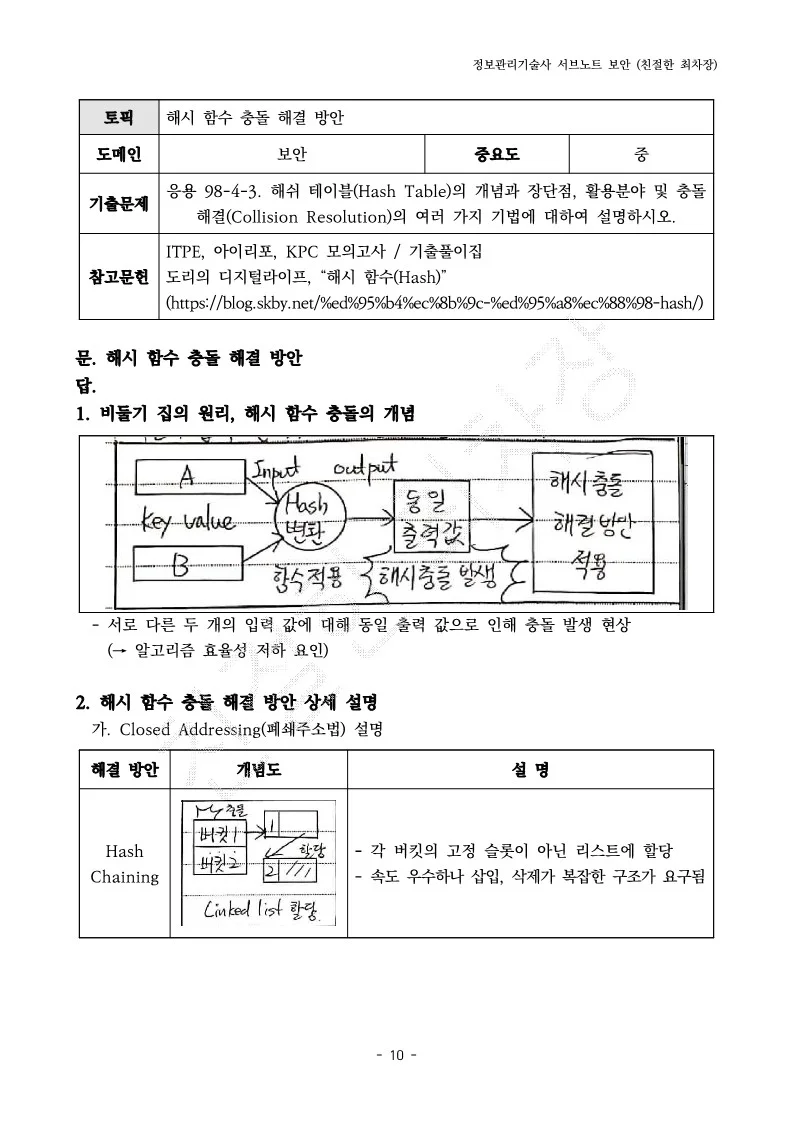 정보관리기술사 서브노트 보안 (친절한 최차장)
토픽 해시 함수 충돌 해결 방안
도메인 보안 중요도 중
기출문제 응용 98-4-3. 해쉬 테이블(Hash Table)의 개념과 장단점, 활용분야 및 충돌
해결(Collision Resolution)의 여러 가지 기법에 대하여 설명하시오.
참고문헌 ITPE, 아이리포, KPC 모의고사 / 기출풀이집
도리의 디지털라이프, “해시 함수(Hash)”
(https://blog.skby.net/%ed%95%b4%ec%8b%9c-%ed%95%a8%ec%88%98-hash/)
문. 해시 함수 충돌 해결 방안
답.
1. 비둘기 집의 원리, 해시 함수 충돌의 개념
A Input output
Key value
B
Hash
변환
함수적용
동일
출력값
해시충돌 발생
해시충돌
해결방안
적용
- 서로 다른 두 개의 입력 값에 대해 동일 출력 값으로 인해 충돌 발생 현상
(→ 알고리즘 효율성 저하 요인)
2. 해시 함수 충돌 해결 방안 상세 설명
가. Closed Addressing(폐쇄주소법) 설명
해결 방안 개념도 설 명
Hash
Chaining
충돌
버킷1 1
할당
버킷2 2
Linked list 할당.
- 각 버킷의 고정 슬롯이 아닌 리스트에 할당
- 속도 우수하나 삽입, 삭제가 복잡한 구조가 요구됨
- 10 -